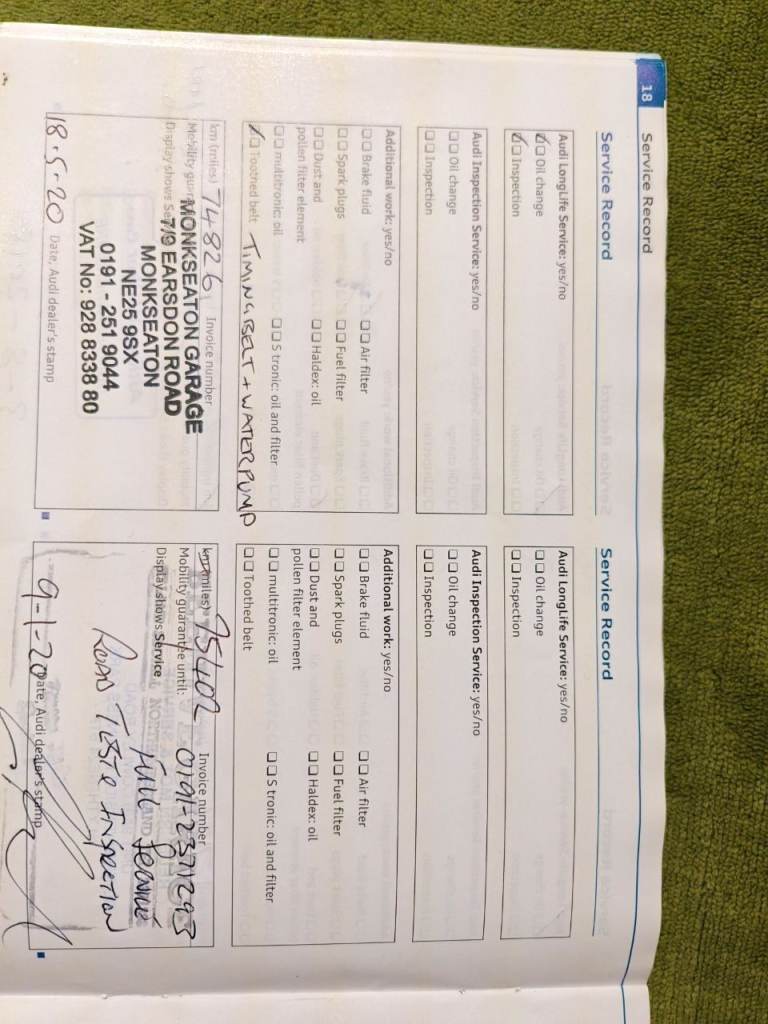 18 Service Record
Service Record
Audi LongLife Service: yes/no
Oil change
Inspection
Audi Inspection Service: yes/no
Oil change
Inspection
Additional work: yes/no
Brake fluid Air filter
Spark plugs Fuel filter
Dust and Haldex: oil
pollen filter element
multitronic: oil S tronic: oil and filter
Toothed belt TIMING BELT + WATER PUMP
km (miles) 74826 Invoice number
Mobility
Display shows
MONKSEATON GARAGE
7/9 EARSDON ROAD
MONKSEATON
NE25 9SX
0191 - 251 9044
VAT No: 928 8338 80
18.5.20 Date, Audi dealer's stamp
Service Record
Audi LongLife Service: yes/no
Oil change
Inspection
Audi Inspection Service: yes/no
Oil change
Inspection
Additional work: yes/no
Brake fluid Air filter
Spark plugs Fuel filter
Dust and Haldex: oil
pollen filter element
multitronic: oil S tronic: oil and filter
Toothed belt
km (miles) 75402 Invoice number
Mobility guarantee until: 0191-2371293
Display shows Service FULL
ROAD INSPECTION
9-1-20 Date, Audi dealer's stamp